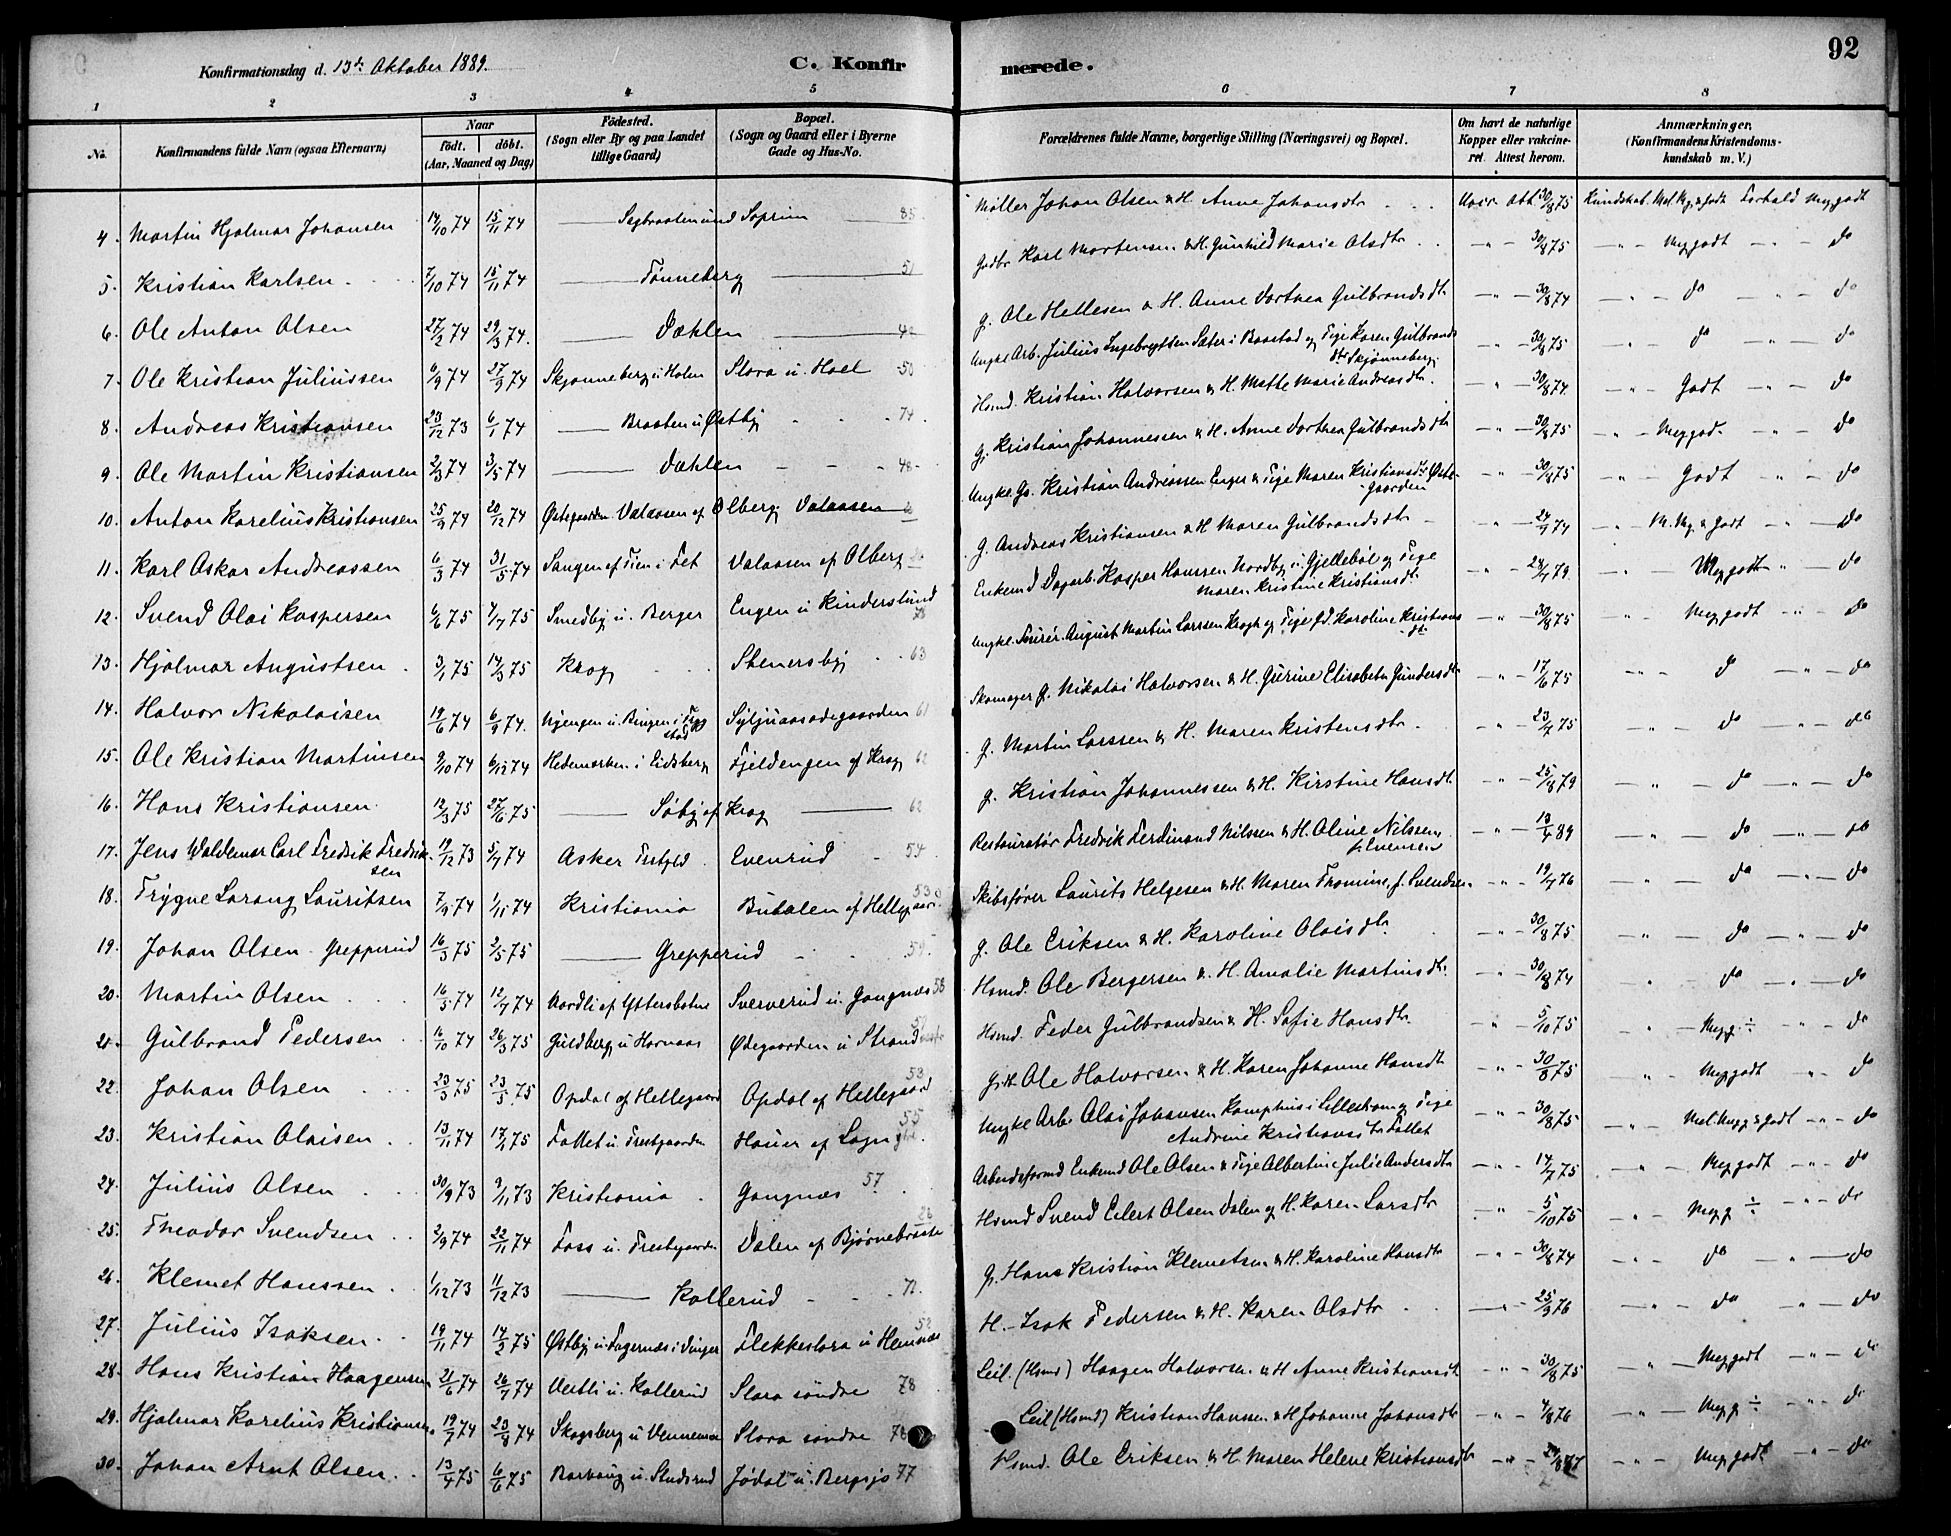 92
Konfirmationsdag d. 13de Oktober 1889. C. Konfir merede.
1 2 3 4 5 6 7 8
No. Konfirmandens fulde Navn (ogsaa Efternavn) Naar födt. döbt. (Aar, Maaned og Dag) Födested. (Sogn eller By og paa Landet tillige Gaard) Bopæl. (Sogn og Gaard eller i Byerne Gade og Hus-No. Forældrenes fulde Navne, borgerlige Stilling (Næringsvei) og Bopæl. Om havt de naturlige Kopper eller vakcineret. Attest herom. Anmærkninger. (Konfirmandens Kristendomskundskab m. V.)
4. Martin Hjalmar Johansen 14/10 74 15/11 74 Sagbraaten und Soprim 85 Møller Johan Olsen & H. Anne Johansdtr 30/8 75 Kundskab. Mel. Mg. & Godt Forhold Meg godt
5. Kristian Karlsen 7/10 74 15/11 74 Tønneberg 51 Gdbr Karl Mortensen & H. Gunhild Marie Olsdtr 30/8 75 Meg godt do
6. Ole Anton Olsen 27/2 74 29/3 74. Dæhlen 48 g. Ole Hellesen & H. Anne Dorthea Gulbrandsdtr 30/8 74 do do
7. Ole Kristian Juliussen 6/9 74 27/9 74 Skjønneberg u. Holm Slora u. Hoel 50 Ungkr. Arb. Julius Engebrethsen Sæter i Baastad og Pige Karen Gulbrandsdtr Skjønneberg. 30/8 75 do do
8. Andreas Kristiansen 23/12 73 6/1 74 Braaten u Østby 74 Hsmd. Kristian Halvorsen & H. Mathe Marie Andreasdtr. 30/8 74 Godt do
9. Ole Martin Kristiansen 2/3 74 3/5 74 Dæhlen 48 g. Kristian Johannessen & H. Anne Dorthea Gulbrandsdtr 30/8 75 Meg god. do
10. Anton Karelius Kristiansen 25/9 74 20/12 74 Østegaarden Valaasen af Olberg Valaasen Ungkr. Gs. Kristian Andreassen Enger & Pige Maren Kristiansdtr Østegaarden 30/8 75 Godt do
11. Karl Oskar Andreassen 6/3 74 31/5 74 Sangen af Tien i Fet Valaasen af Olberg g. Andreas Kristiansen & H Maren Gulbrandsdtr 24/7 74 M. Mg. & Godt do
12. Svend Olai Kaspersen 6/6 75 4/7 75 Smedby u. Berger Engen u Kinderslund Enkemd Dagarb. Kasper Hanssen Nordby u. Gjellebøl og Pige Maren Kristine Kristiansdtr 24/7 79. Meg godt do
13. Hjalmar Augustsen 3/1 75 14/3 75 Krog Stenersby 63 Ungkr. Furér. August Martin Larssen Krogh og Pige Karoline Kristiansdtr 30/8 75 Meg godt do
14. Halvor Nikolaisen 19/6 74 6/9 74. Bingen i Stenersby Syljuaasødegaarden 61 Skomager g. Nikolai Halvorsen & H. Gurine Elisabeth Gundersdtr 17/6 75 do do
15. Ole Kristian Martinsen 9/10 74 6/12 74 Hedemarken i Eidsberg Fjeldengen af Krog 62 g. Martin Larssen & H. Maren Kristensdtr 23/7 75 do do
16. Hans Kristiansen 12/3 75 27/6 75 Søby af Krog 62 g. Kristian Johannessen & H. Kirstine Hansdtr 25/8 79 do do
17. Jens Waldemar Carl Fredrik Fredriksen 19/12 73 5/7 74 Asker Evenrud 54. Restauratør Fredrik Ferdinand Nilssen & H. Oline Nilssen, f. Evensen 13/4 89 do do
18. Trygve Sarang Lauritsen 7/9 74 1/11 74 Kristiania Bubalen af Hellegaard 53 Skibsfører Laurits Helgesen & H. Maren Thomine, f. Svendsen 19/7 76 do do
19. Johan Olsen Grepperud 16/3 75 2/5 75 Grepperud 59. g. Ole Eriksen & H. Karoline Olaisdtr. 30/8 75 do do
20. Martin Olsen 16/5 74 12/7 74 Nordli af Yttersbotne Sververud u. Gangnæs 58 Hsmd. Ole Bergersen & H. Amalie Martinsdtr. 30/8 74 do do
21. Gulbrand Pedersen 16/10 74 26/3 75 Guldberg u Hornaas Ødegaarden u Strand Hsmd. Peder Gulbrandsen & H. Sofie Hansdtr. 5/10 75 Megg ÷ do
22. Johan Olsen 23/3 75 23/5 75 Opdal af Hellegaard Opdal af Hellegaard 53 Ole Halvorsen & H. Karen Johanne Hansdtr 30/8 75 Meg godt do
23. Kristian Olaisen 13/11 74 17/1 75 Fallet u. Prestgaarden Hauer af Sogn 55 Ungkr Arb. Olai Johansen Kamphus i Lillestrøm og Pige Andrine Kristiansdtr Fallet 30/8 75 Mel. Megg & godt do
24. Julius Olsen 30/9 73 9/11 73 Kristiania Gangnæs 57. Arbeidsformd Enkemd Ole Olsen & Pige Albertine Julie Andersdtr 14/7 75 Meg godt do
25. Theodor Svendsen 2/9 74 22/11 74 Foss u. Prestegaarden Dalen af Bjørnebraate 26 Hsmd Svend Eilert Olsen Dalen og H. Karen Larsdtr 5/10 75 Megg ÷ do
26. Klemet Hanssen 1/12 73 11/12 73 Kollerud 72. g. Hans Kristian Klemetsen & H. Karoline Hansdtr 30/8 74 do do
27. Julius Isaksen 19/11 74 14/2 75 Østby u. Fagernæs i Vinger Flekkeslora u Hemnæs 52 H. Isak Pedersen & H. Karen Olsdtr 25/3 76 do do
28. Hans Kristian Haagensen 21/6 74 26/7 74 Vestli u. Kollerud Slora søndre 78 Leil. (Hsmd) Haagen Halvorsen & H Anne Kristiansdtr 30/8 75 Meg godt do
29. Hjalmar Karelius Kristiansen 19/7 74 23/8 74 Skogsberg u Vennemoe Slora søndre 78 Leil (Hsmd) Kristian Hansen & H Johanne Johansdtr 4/8 76 Megg ÷ do
30. Johan Arnt Olsen 13/4 75 6/6 75 Barhaug u. Studsrud Jødal u. Bergsjø 77 Hsmd. Ole Eriksen & H. Maren Helene Kristiansdtr 24/8 77 Meg godt do